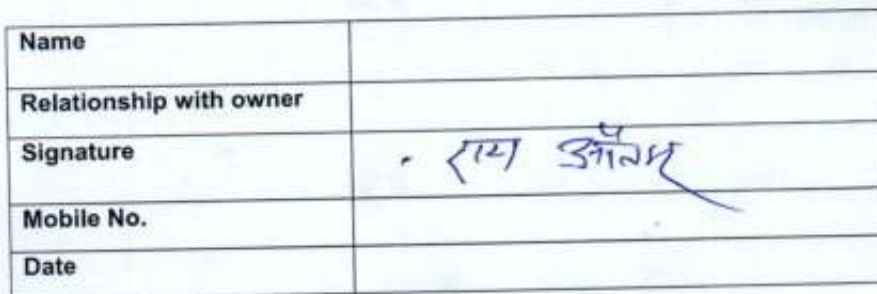 Name
Relationship with owner
Signature राय
Mobile No.
Date